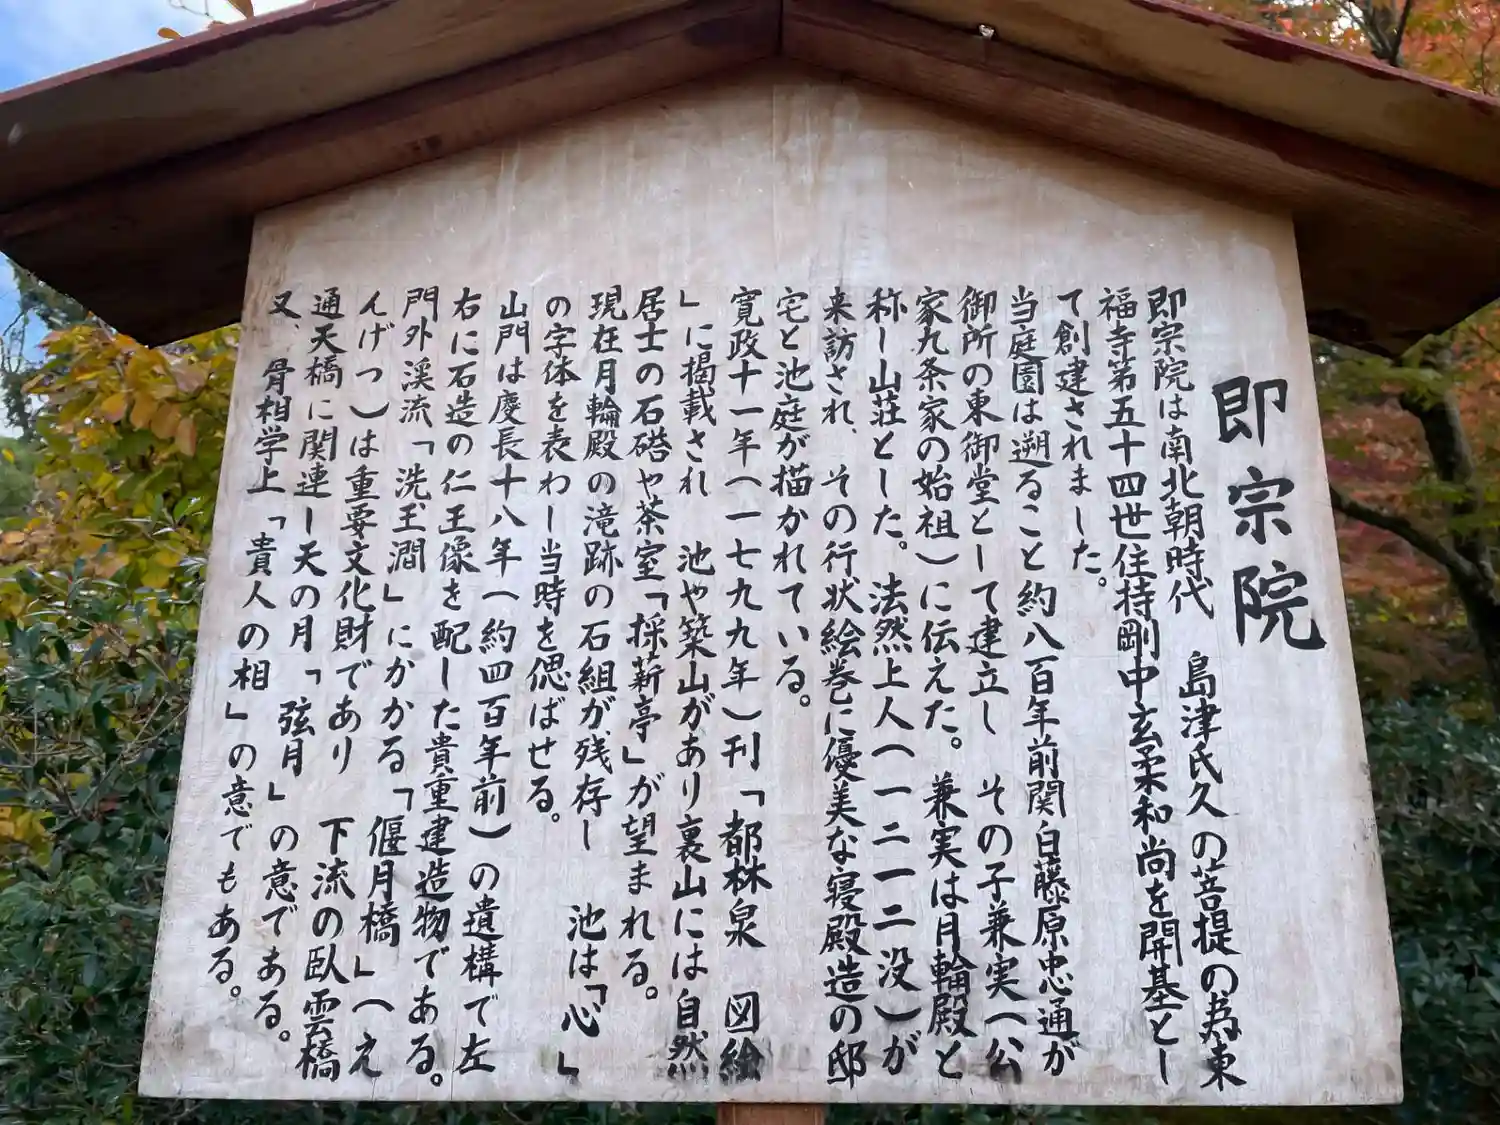 即宗院
即宗院は南北朝時代　島津氏久の菩提の為東
福寺第五十四世住持剛中玄柔和尚を開基とし
て創建されました。
当庭園は遡ること約八百年前関白藤原忠通が
御所の東御堂として建立し　その子兼実（公
家九条家の始祖）に伝えた。兼実は月輪殿と
称し山荘とした。法然上人（一二一二没）が
来訪され、その行状絵巻に優美な寝殿造の邸
宅と池庭が描かれている。
寛政十一年（一七九九年）刊「都林泉　図絵
」に掲載され　池や築山があり裏山には自然
居士の石碞や茶室「採薪亭」が望まれる。
現在月輪殿の滝跡の石組が残存し　池は「心」
の字体を表わし当時を偲ばせる。
山門は慶長十八年（約四百年前）の遺構で左
右に石造の仁王像を配した貴重建造物である。
門外渓流「洗玉澗」にかかる「偃月橋」（え
んげつ）は重要文化財であり　下流の臥雲橋
通天橋に関連し天の月「弦月」の意である。
又、骨相学上「貴人の相」の意でもある。